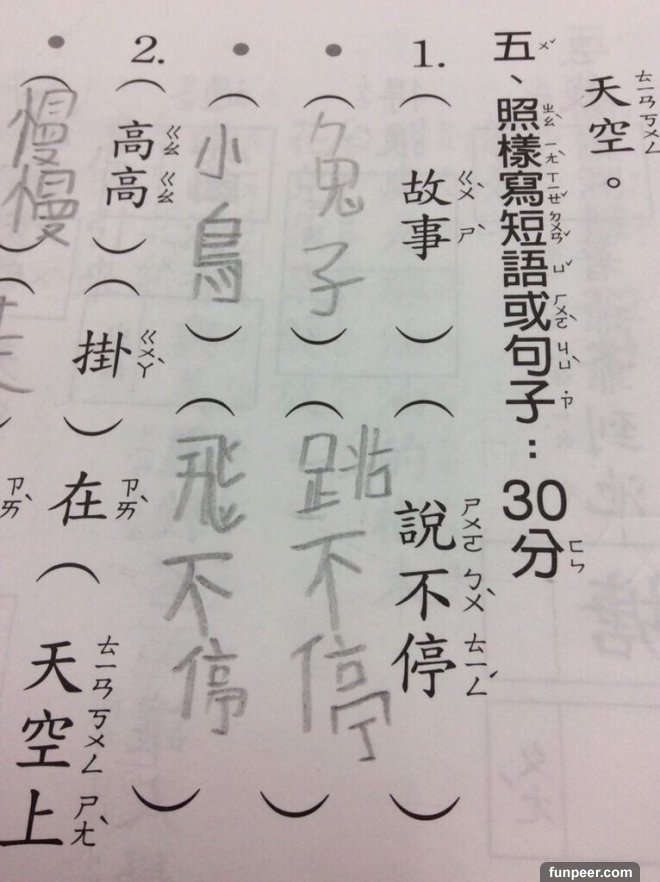 天空。
五、照樣寫短語或句子：30分
1.（故事）（說不停）
•（兔子）（跳不停）
•（小鳥）（飛不停）
2.（高高）（掛）在（天空上
•（慢慢）（
funpeer.com